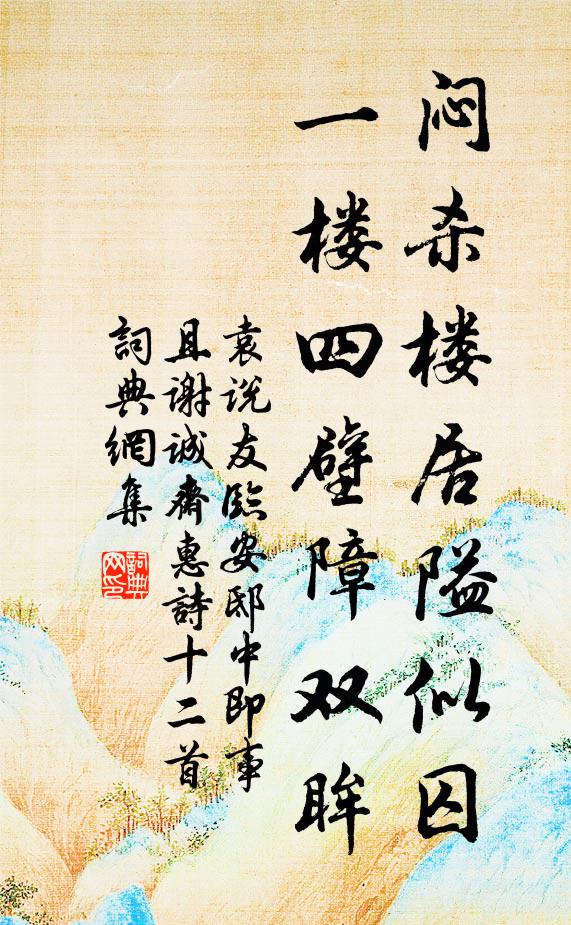 闷杀楼居隘似囚
一楼四壁障双眸
袁说友臨安邸中即事
且谢诚齋惠詩十二首
詞典網集
詞典网印